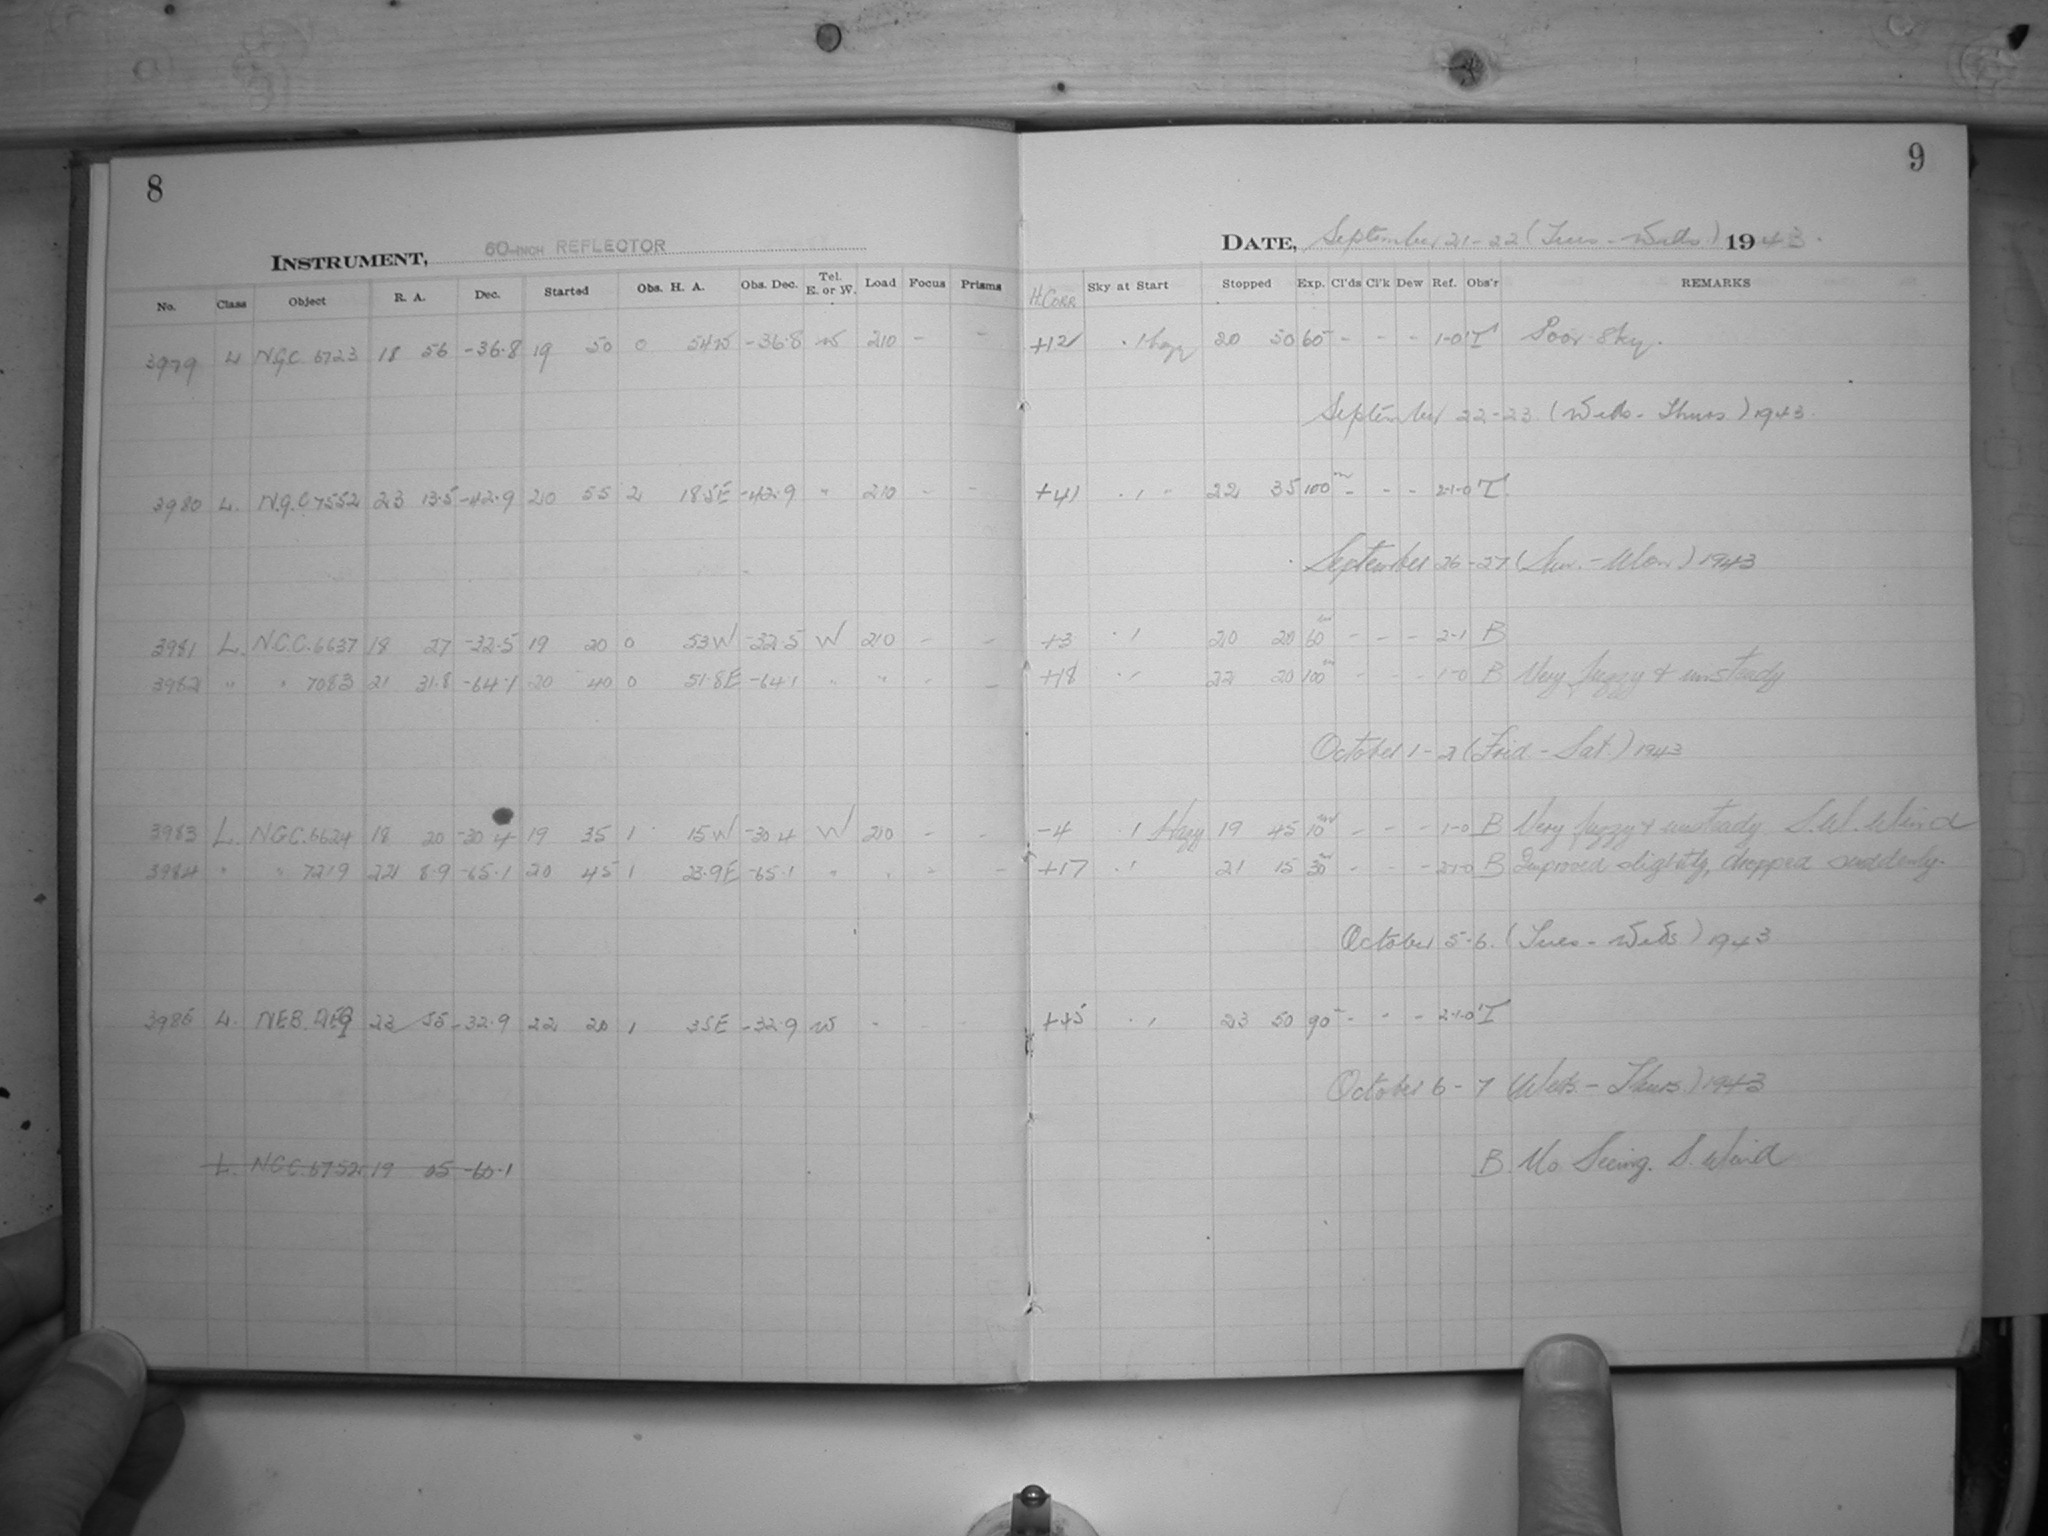 8
9
INSTRUMENT, 60-INCH REFLECTOR
DATE, September 21-22 (Tues - Weds) 1943.
No. Class Object R. A. Dec. Started Obs. H. A. Obs. Dec. Tel. E. or W. Load Focus Prisms H.CORR Sky at Start Stopped Exp. Cl'ds Cl'k Dew Ref. Obs'r REMARKS
3979 L NGC 6723 18 56 -36.8 19 50 0 54W -36.8 W 210 - - +12 Hazy 20 50 60 - - - 1-0 T Poor Sky.
September 22-23 (Weds - Thurs) 1943.
3980 L. N.G.C 7552 23 13.5 -42.9 20 55 2 18.5E -42.9 " 210 - - +41 22 35 100m - - - 2-1-0 T.
September 26-27 (Sun. - Mon) 1943
3981 L. N.G.C. 6637 18 27 -32.5 19 20 0 53W -32.5 W 210 - - +3 20 20 60m - - - 2-1 B
3982 " " 7083 21 31.8 -64.1 20 40 0 51.8E -64.1 " " - - +18 22 20 100m - - - 1-0 B Very fuzzy & unsteady
October 1-2 (Frid - Sat) 1943
3983 L. NGC.6624 18 20 -30.4 19 35 1 15W -30.4 W 210 - - -4 Hazy 19 45 10m - - - 1-0 B Very fuzzy & unsteady. S.W. Wind
3984 " " 7219 22 8.9 -65.1 20 45 1 23.9E -65.1 " " - - +17 21 15 30m - - - 2-1-0 B Improved slightly, dropped suddenly.
October 5-6. (Tues - Weds) 1943
3985 L. NEB. 22 55 -32.9 22 20 1 35E -32.9 W - +45 23 50 90 - - - 2-1-0 T
October 6-7 (Weds. - Thurs.) 1943
L. NGC.6752 19 05 -60.1 B No Seeing. S. Wind